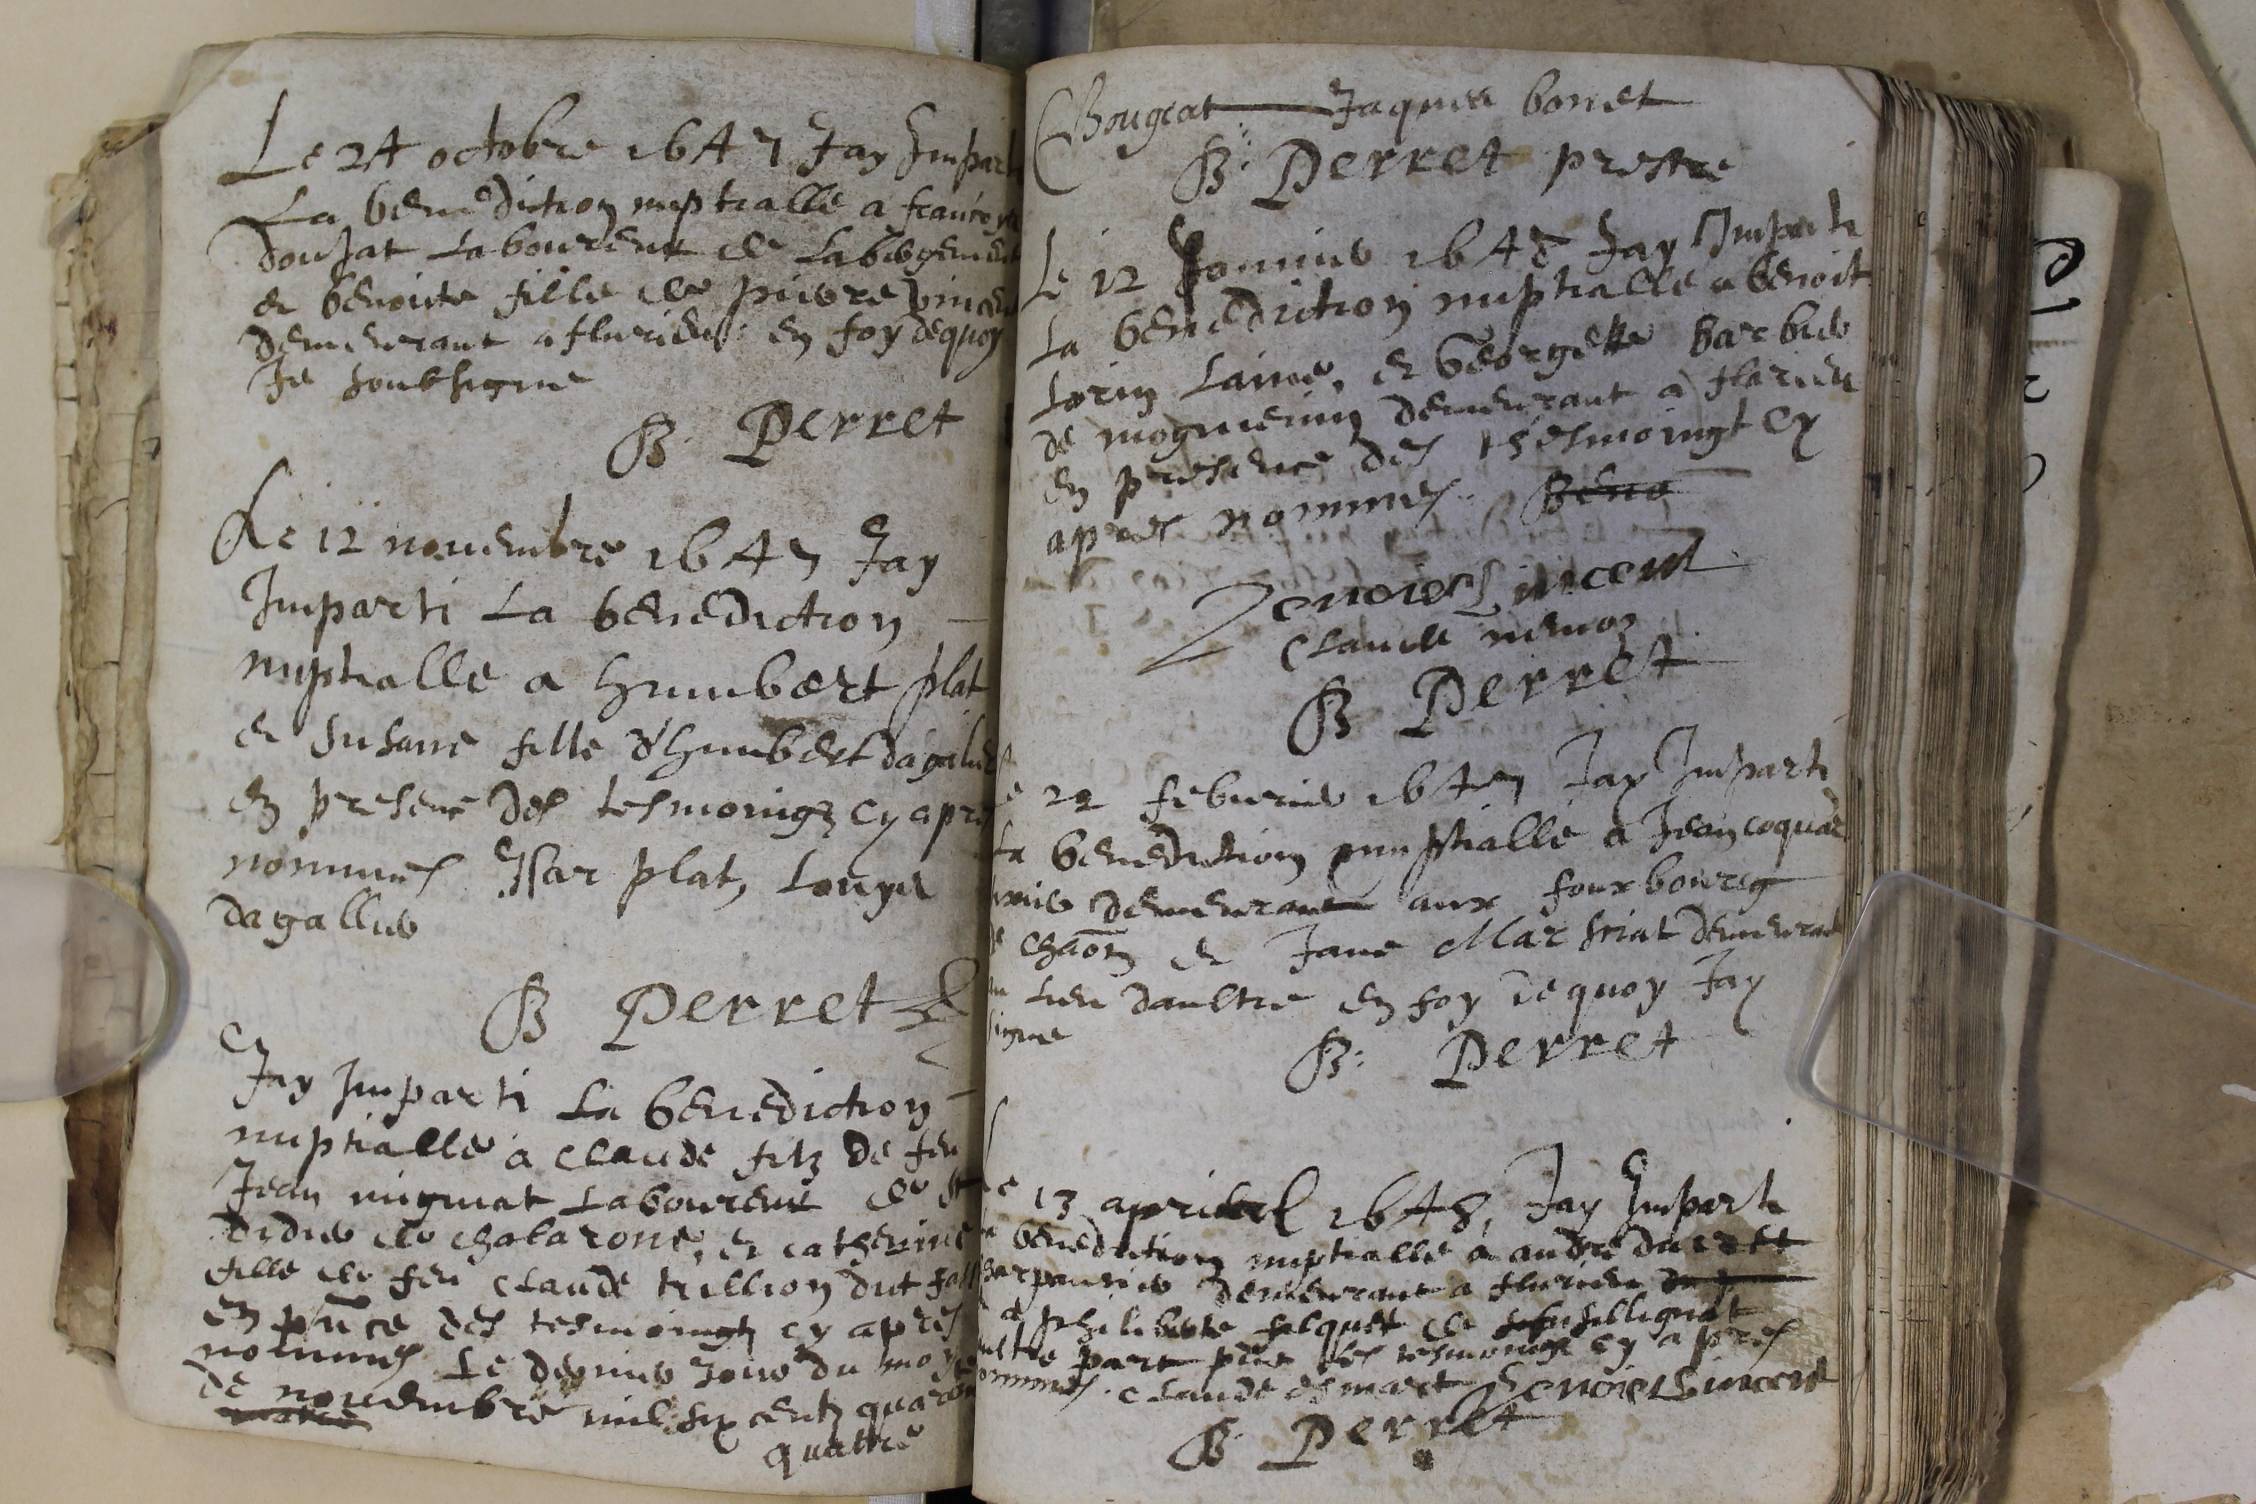 Le 24 octobre 1647 Jay Imparti
La benediction nuptialle a francoys
donjat laboureur de labergement
et benoitte fille de pierre vincent
demeurant a flurieu en foy dequoy
Je soubsigne
B. Perret
Le 12 nouembre 1647 Jay
Imparti La benediction
nuptialle a humbert plat
et susane fille d'humbert dagalier
en presence des tesmoingz cy apres
nommes Isac plat, Louys
dagallier
B Perret
Jay Imparti La benediction
nuptialle a Claude filz de feu
Jean mignat laboureur de St
didier de chalarone, et catherine
fille de feu Claude trillion dut
en pnce des tesmoingz cy apres
nommes Le dernier Jour du moys
de nouembre mil six centz quarante
quattre
Bougeat Jaques bonet
B. Perret prestre
Le 12 Januier 1648 Jay Imparti
La benediction nuptialle a benoit
Lorin Laine, et Georgette barbier
de mogneneins demeurant a flurieu
en presence des tesmoingt cy
apres nommes. Beno
Benoict Vincent
Claude
B Perret
Le 22 feburier 1647 Jay Imparti
La benediction nuptialle a Jean coquard
demeurant aux fourbourg
de chaon et Jane Marsriat demeurant
au lieu daultre en foy dequoy Jay
signe
B: Perret
Le 13 apvril 1648, Jay Imparti
La benediction nuptialle a andre ducrest
charpentier demeurant a flurieu
et a philiberte falquet de sulignat
aultre part pnt les tesmoingt cy apres
nommes. Claude esmart Benoict Vincent
B. Perret